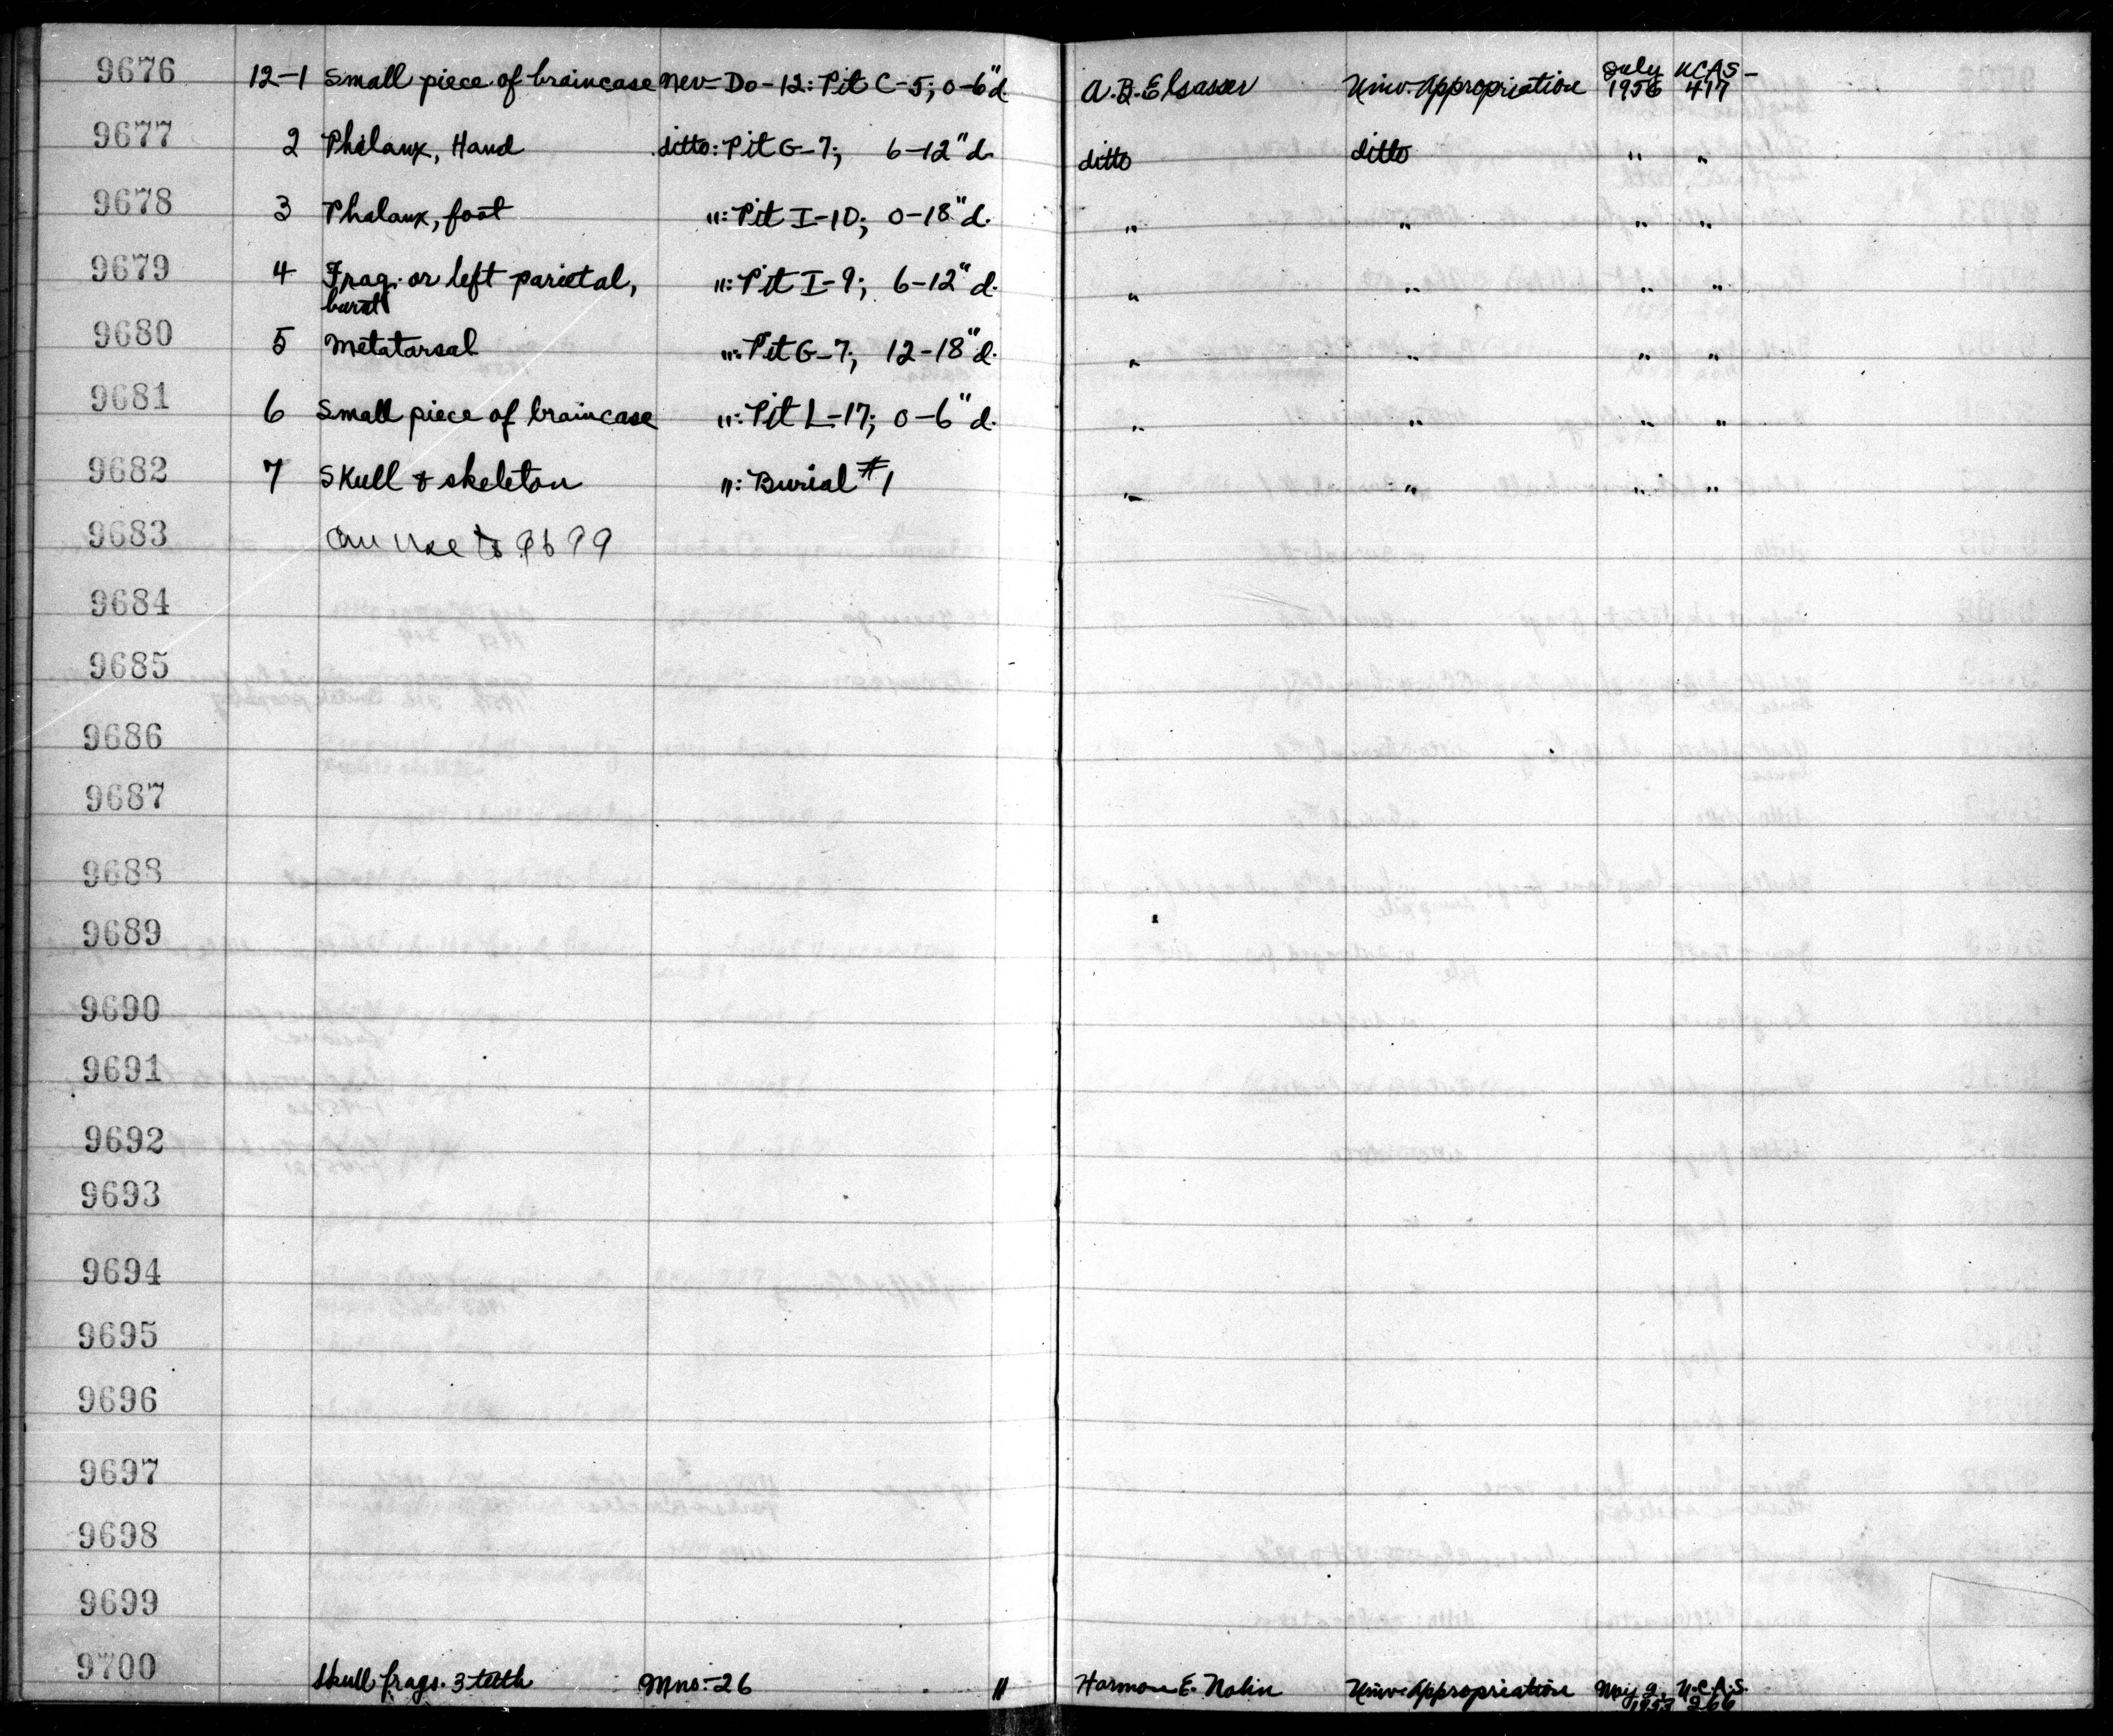 9676 12-1 Small piece of braincase Nev-Do-12: Pit C-5; 0-6"d. A.B. Elsasser Univ. Appropriation July 1956 UCAS-417
9677 2 Phalanx, Hand ditto: Pit G-7; 6-12"d. ditto ditto " "
9678 3 Phalanx, foot ": Pit I-10; 0-18"d. " " " "
9679 4 Frag. or left parietal, burnt ": Pit I-9; 6-12"d. " " " "
9680 5 Metatarsal ": Pit G-7; 12-18"d. " " " "
9681 6 Small piece of braincase ": Pit L-17; 0-6"d. " " " "
9682 7 Skull & skeleton ": Burial #1 " " " "
9683 can use to 9699
9684
9685
9686
9687
9688
9689
9690
9691
9692
9693
9694
9695
9696
9697
9698
9699
9700 Skull frags. 3 teeth Mno-26 Harmon E. Nolin Univ. Appropriation May 2, 1953 U.C.A.S. 266